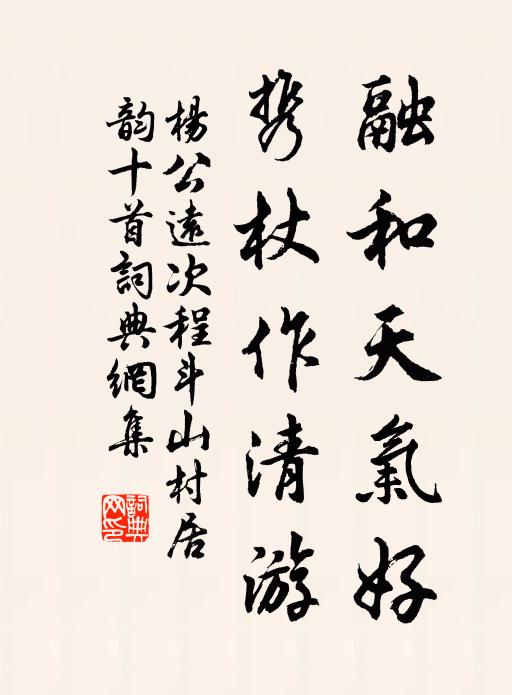 融和天氣好
携杖作清游
楊公遠次程斗山村居
韵十首詞典網集
詞典网印